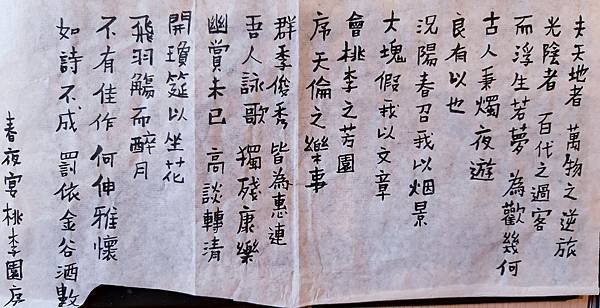 夫天地者 萬物之逆旅
光陰者 百代之過客
而浮生若夢 為歡幾何
古人秉燭夜遊
良有以也
況陽春召我以烟景
大塊假我以文章
會桃李之芳園
序天倫之樂事
群季俊秀 皆為惠連
吾人詠歌 獨殘康樂
幽賞未已 高談轉清
開瓊筵以坐花
飛羽觴而醉月
不有佳作 何伸雅懷
如詩不成 罰依金谷酒數
春夜宴桃李園序